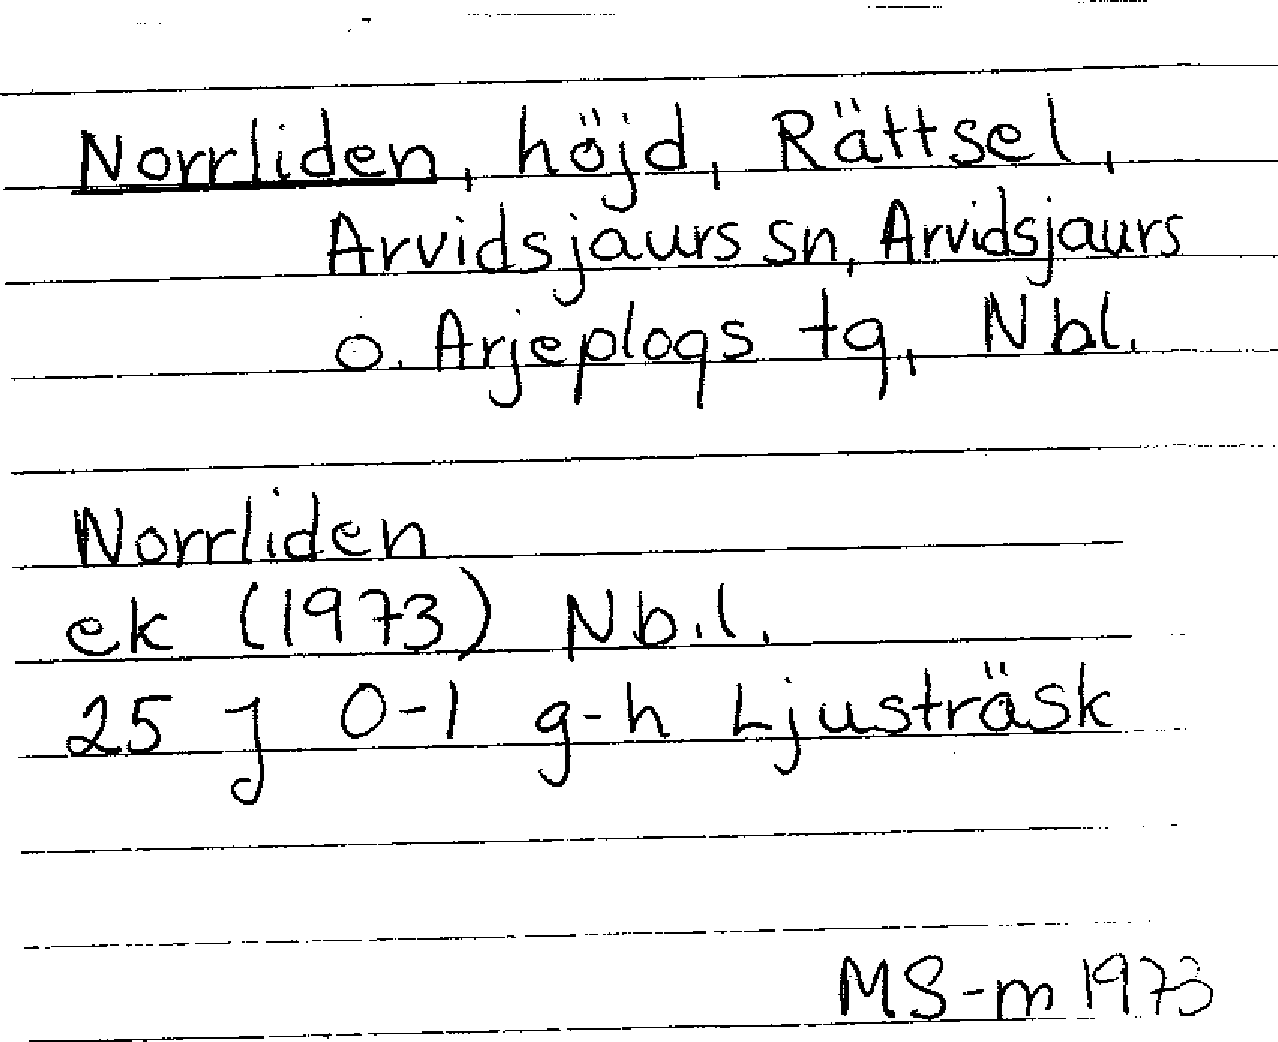 Norrliden, höjd, Rättsel,
Arvidsjaurs sn, Arvidsjaurs
o. Arjeplogs tg, Nbl.
Norrliden
ek (1973) Nb.l.
25 J 0-1 g-h Ljusträsk
MS-m 1973